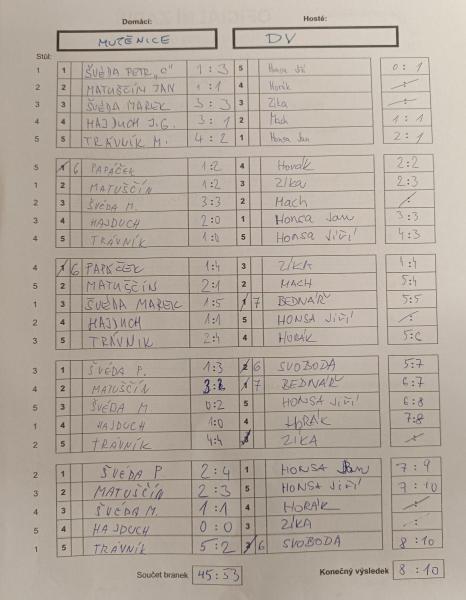 Domácí: Hosté:
MUTĚNICE DV
Stůl:
1 1 ŠVÉDA PETR „C" 1:3 5 Honsa Jiří 0:1
2 2 MATUŠČÍN JAN 1:1 4 Horák -:-
3 3 ŠVÉDA MAREK 3:3 3 Zíka -:-
4 4 HAJDUCH J.G. 3:1 2 Mach 1:1
5 5 TRÁVNÍK M. 4:2 1 Honsa Jan 2:1
5 1 6 PAPÁČEK 1:2 4 Horák 2:2
1 2 MATUŠČÍN 1:2 3 Zíka 2:3
2 3 ŠVÉDA M. 3:3 2 Mach -:-
3 4 HAJDUCH 2:0 1 Honsa Jan 3:3
4 5 TRÁVNÍK 1:0 5 Honsa Jiří 4:3
4 1 6 PAPÁČEK 1:4 3 ZÍKA 4:4
5 2 MATUŠČÍN 2:1 2 MACH 5:4
1 3 ŠVÉDA MAREK 1:5 1 7 BEDNÁŘ 5:5
2 4 HAJDUCH 1:1 5 HONSA JIŘÍ -:-
3 5 TRÁVNÍK 2:4 4 HORÁK 5:6
3 1 ŠVÉDA P. 1:3 2 6 SVOBODA 5:7
4 2 MATUŠČÍN 1 7 BEDNÁŘ 6:7
5 3 ŠVÉDA M 0:2 5 HONSA JIŘÍ 6:8
1 4 HAJDUCH 1:0 4 HORÁK 7:8
2 5 TRÁVNÍK 4:4 3 ZÍKA -:-
2 1 ŠVÉDA P 2:4 1 HONSA Jan 7:9
3 2 MATUŠČÍN 2:3 5 HONSA JIŘÍ 7:10
4 3 ŠVÉDA M. 1:1 4 HORÁK -:-
5 4 HAJDUCH 0:0 3 ZÍKA -:-
1 5 TRÁVNÍK 5:2 2 6 SVOBODA 8:10
Součet branek 45:53 Konečný výsledek 8:10